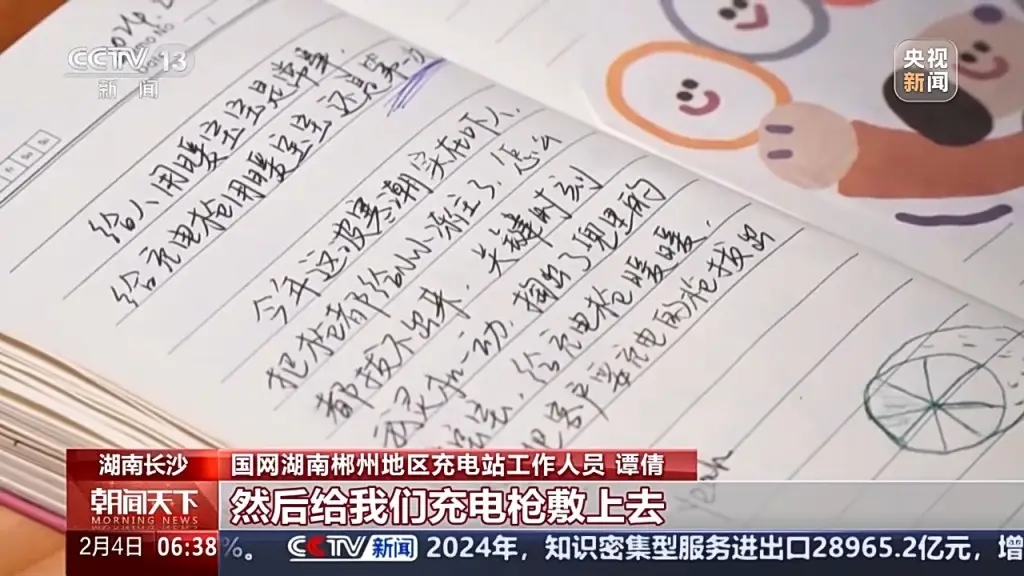 CCTV 13
新闻
央视
新闻
给人用暖宝宝是常事,
给充电枪用暖宝宝还是第一次
今年这波寒潮实在吓人,
把枪都给冰冻住了,怎么
都拔不出来,关键时刻
我灵机一动,掏出了兜里的
宝宝,给充电枪暖暖,
把客户要充电的枪拔出
yeah
湖南长沙
国网湖南郴州地区充电站工作人员 谭倩
朝闻天下
MORNING NEWS
然后给我们充电枪敷上去
2月4日 06:38
%。 CCTV新闻 2024年,知识密集型服务进出口28965.2亿元,增